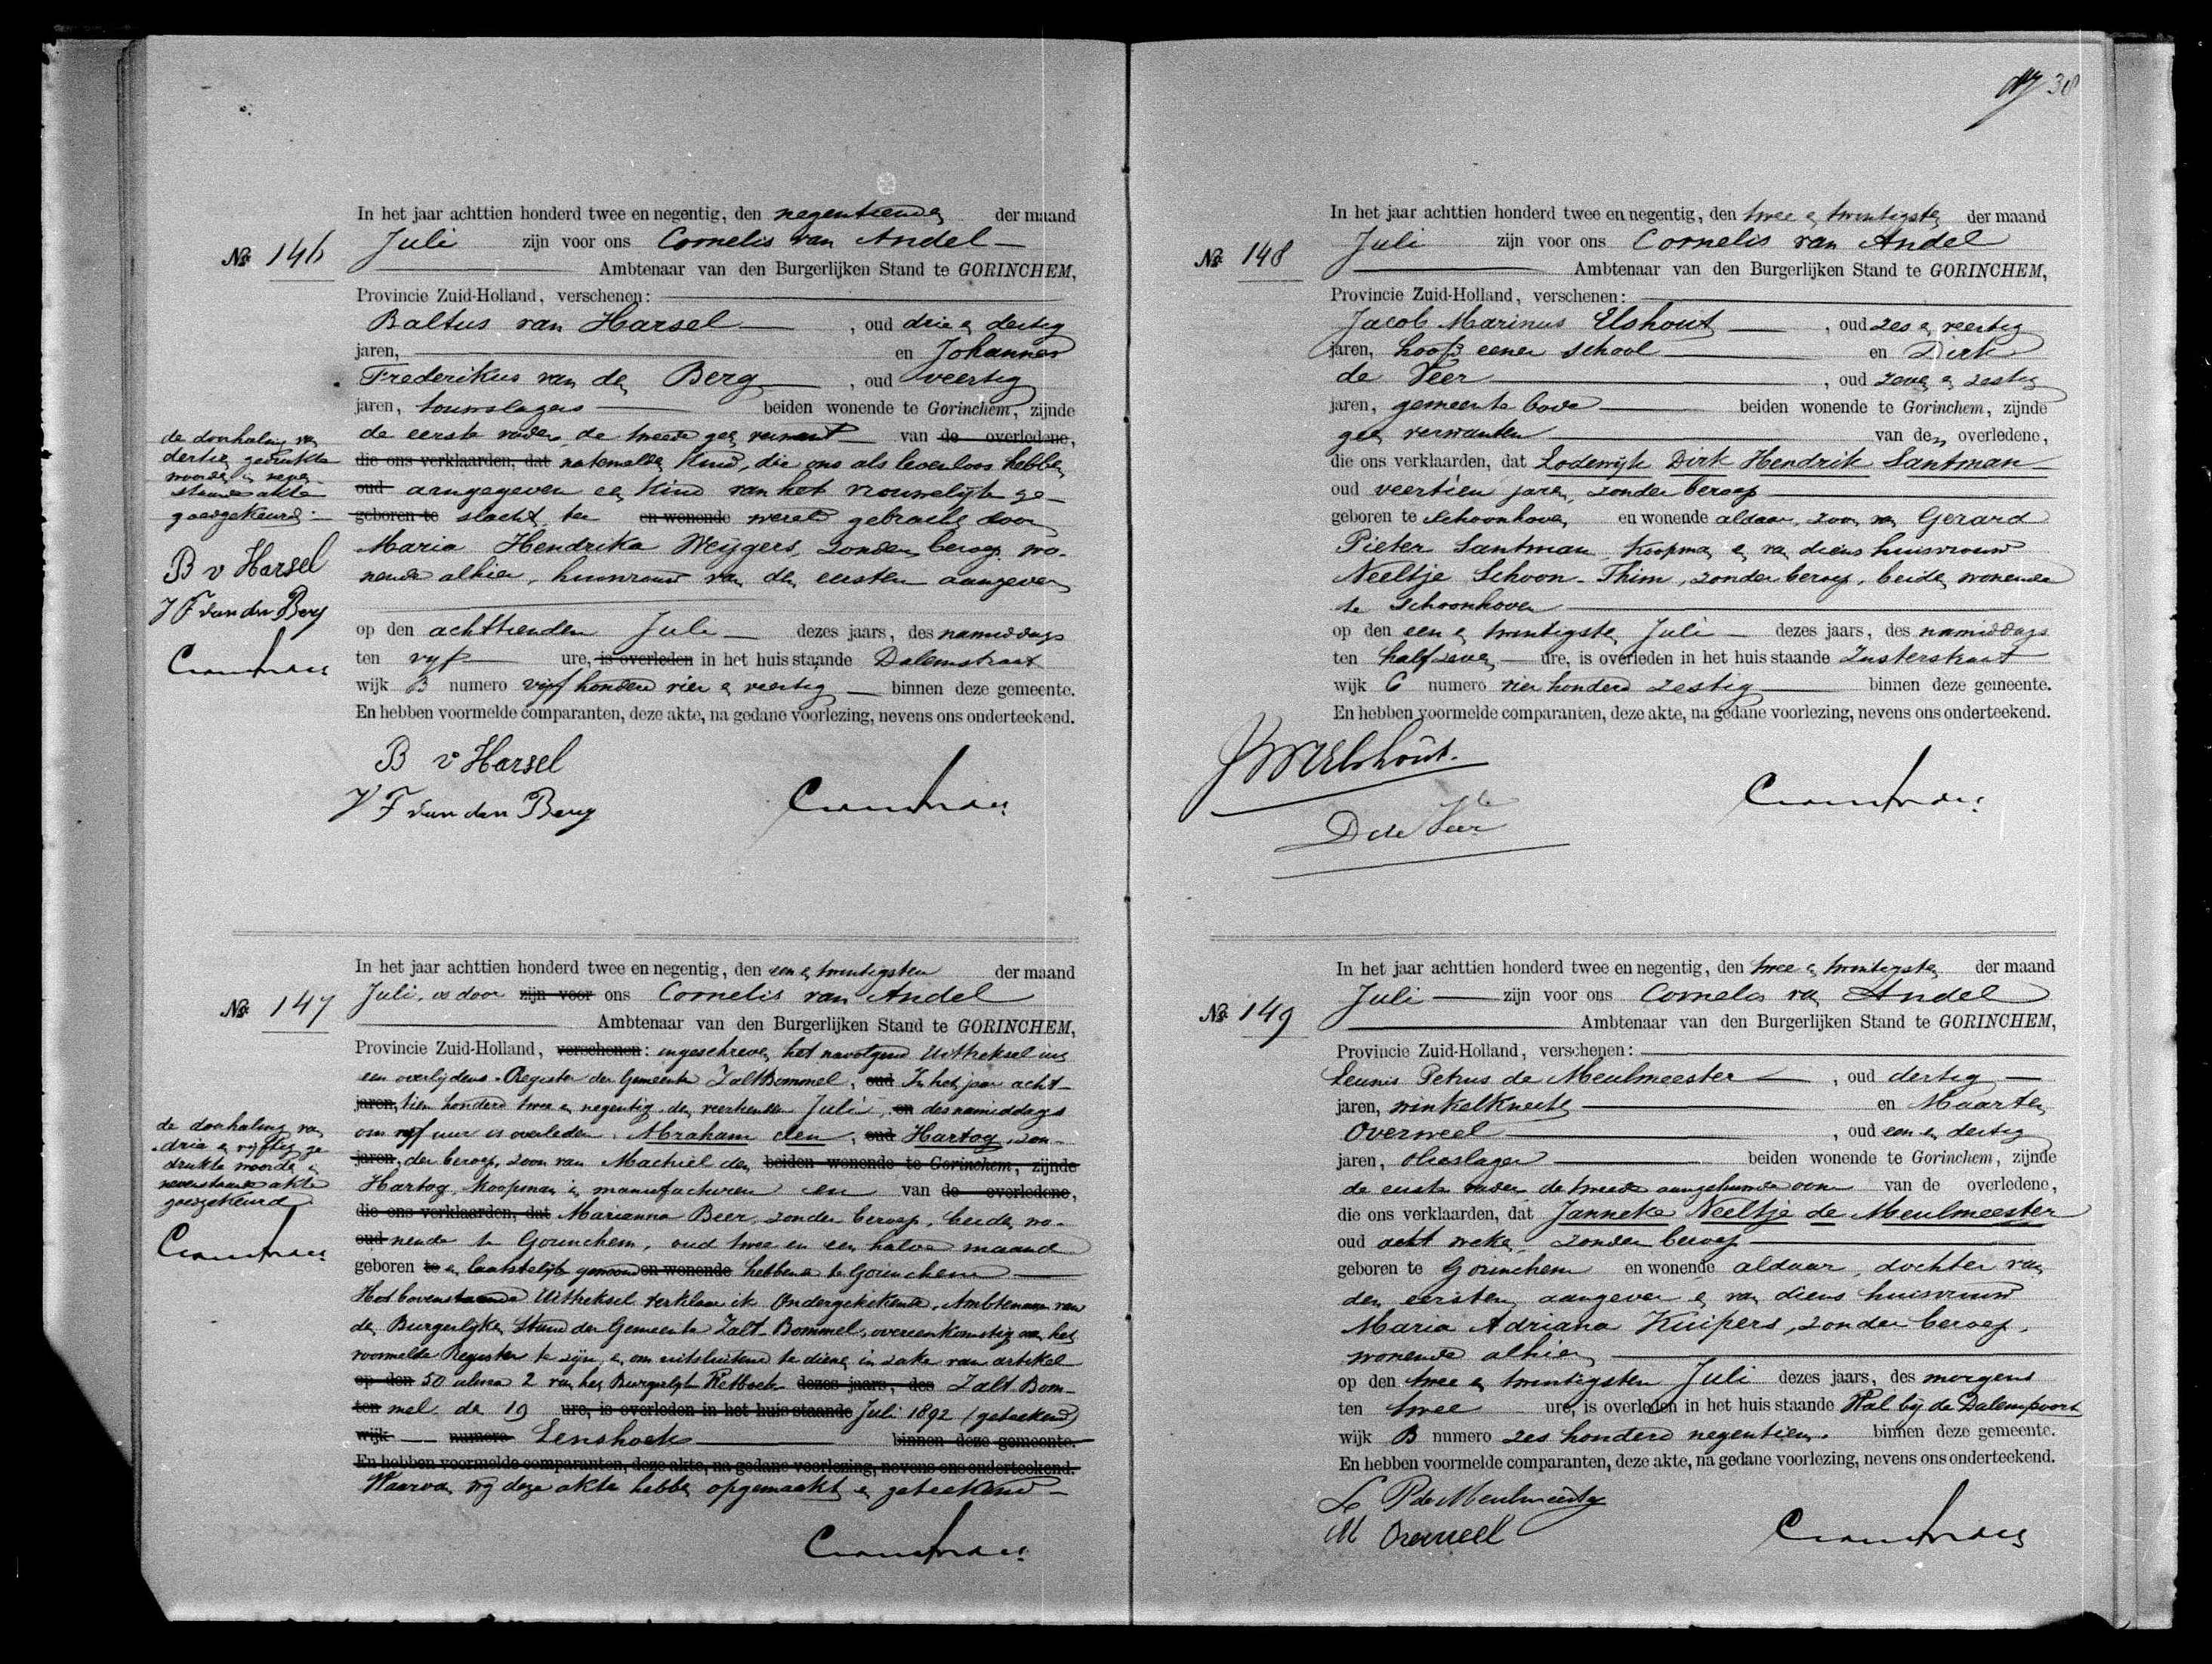 38
No 146
In het jaar achttien honderd twee en negentig, den negentienden der maand
Juli zijn voor ons Cornelis van Andel
Ambtenaar van den Burgerlijken Stand te GORINCHEM,
Provincie Zuid-Holland, verschenen:
Baltus van Harsel, oud drie en dertig
jaren, en Johannes
Frederikus van den Berg, oud veertig
jaren, touwslagers beiden wonende te Gorinchem, zijnde
de eerste vader, de tweede geen verwant van de overledene,
die ons verklaarden, dat natemelden kind, die ons als levenloos hebben
oud aangegeven een kind van het vrouwelijk ge-
geboren te slacht, ter en wonende wereld gebracht door
Maria Hendrika Weijgers, zonder beroep wo-
nende alhier, huisvrouw van den eersten aangever
op den achttienden Juli dezes jaars, des namiddags
ten vyf ure, is overleden in het huis staande Dalemstraat
wijk B numero vijf honderd vier en veertig binnen deze gemeente.
En hebben voormelde comparanten, deze akte, na gedane voorlezing, nevens ons onderteekend.
de doorhaling van
dertien gedrukte
woorden in neven-
staande akte
goedgekeurd
B v Harsel
J F van den Berg
B v Harsel
J F van den Berg
No 147
In het jaar achttien honderd twee en negentig, den een en twintigsten der maand
Juli, is door zijn voor ons Cornelis van Andel
Ambtenaar van den Burgerlijken Stand te GORINCHEM,
Provincie Zuid-Holland, verschenen: ingeschreven het navolgend Uittreksel uit
een overlijdens-Register der Gemeente ZaltBommel, oud In het jaar acht-
jaren, tien honderd twee en negentig den veertienden Juli, en des namiddags
om vyf uur is overleden, Abraham den, oud Hartog, zon-
jaren, der beroep, zoon van Machiel den beiden wonende te Gorinchem, zijnde
Hartog, koopman in manufacturen en van de overledene,
die ons verklaarden, dat Marianna Beer, zonder beroep, beiden wo-
oud nende te Gorinchem, oud twee en een halve maand
geboren te en laatstelijk gewoond en wonende hebbende te Gorinchem
Het bovenstaande Uittreksel verklaar ik Ondergeteekende, Ambtenaar van
den Burgerlyken Stand der Gemeente Zalt-Bommel, overeenkomstig aan het
voormelde Register te zijn, en om uitsluitend te dienen in zake van artikel
op den 50 alinea 2 van het Burgerlyk Wetboek dezes jaars, des Zalt Bom-
ten mel de 19 ure, is overleden in het huis staande Juli 1892 (geteekend)
wijk numero Lenshoek binnen deze gemeente.
En hebben voormelde comparanten, deze akte, na gedane voorlezing, nevens ons onderteekend.
Waarvan wij deze akte hebben opgemaakt en geteekend
de doorhaling van
drie en vyftig ge
drukte woorden in
nevenstaande akte
goedgekeurd
No 148
In het jaar achttien honderd twee en negentig, den twee en twintigsten der maand
Juli zijn voor ons Cornelis van Andel
Ambtenaar van den Burgerlijken Stand te GORINCHEM,
Provincie Zuid-Holland, verschenen:
Jacob Marinus Elshout, oud zes en veertig
jaren, hoofd eener school en Dirk
de Veer, oud zeven en zestig
jaren, gemeente bode beiden wonende te Gorinchem, zijnde
geen verwanten van den overledene,
die ons verklaarden, dat Lodewijk Dirk Hendrik Santman
oud veertien jaren, zonder beroep
geboren te Schoonhoven en wonende aldaar, zoon van Gerard
Pieter Santman koopman en van diens huisvrouw
Neeltje Schoon-Thim, zonder beroep, beiden wonende
te Schoonhoven
op den een en twintigsten Juli dezes jaars, des namiddags
ten half zeven ure, is overleden in het huis staande Zusterstraat
wijk C numero vier honderd zestig binnen deze gemeente.
En hebben voormelde comparanten, deze akte, na gedane voorlezing, nevens ons onderteekend.
JMElshout.
D de Veer
No 149
In het jaar achttien honderd twee en negentig, den twee en twintigsten der maand
Juli zijn voor ons Cornelis van Andel
Ambtenaar van den Burgerlijken Stand te GORINCHEM,
Provincie Zuid-Holland, verschenen:
Leunis Petrus de Meulmeester, oud dertig
jaren, winkelknecht en Maarten
Overweel, oud een en dertig
jaren, Olieslager beiden wonende te Gorinchem, zijnde
de eerste vader, de tweede aangehuwde oom van de overledene,
die ons verklaarden, dat Janneke Neeltje de Meulmeester
oud acht weken, zonder beroep
geboren te Gorinchem en wonende aldaar, dochter van
den eersten aangever en van diens huisvrouw
Maria Adriana Kuipers, zonder beroep,
wonende alhier
op den twee en twintigsten Juli dezes jaars, des morgens
ten twee ure, is overleden in het huis staande Wal bij de Dalempoort
wijk B numero zes honderd negentien. binnen deze gemeente.
En hebben voormelde comparanten, deze akte, na gedane voorlezing, nevens ons onderteekend.
L P de Meulmeester
M Overweel